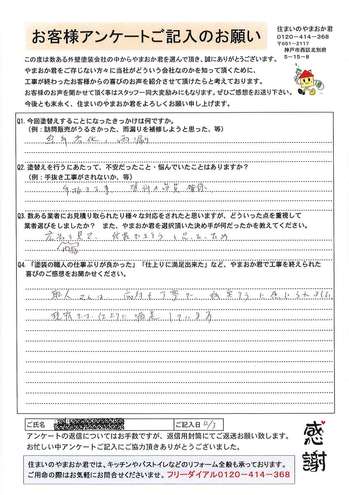 お客様アンケートご記入のお願い
住まいのやまおか君
0120-414-368
〒651-2117
神戸市西区北別府
5-15-8
この度は数ある外壁塗装会社の中からやまおか君を選んで頂き、誠にありがとうございます。
やまおか君をご存じない方々に当社がどういう会社なのかを知って頂くために、
工事が終わったお客様からの喜びのお声を紹介させて頂けたらと考えております。
お客様のお声を聞かせて頂く事はスタッフ一同大変励みにもなります。ぜひご感想をお送り下さい。
今後とも末永く、住まいのやまおか君をよろしくお願い申し上げます。
Q1. 今回塗替えすることになったきっかけは何ですか。
(例：訪問販売がうるさかった、雨漏りを補修しようと思った、等)
Q2. 塗替えを行うにあたって、不安だったこと・悩んでいたことはありますか？
(例：手抜き工事がされないか、等)
手抜き工事、
Q3. 数ある業者にお見積り取られたり様々な対応をされたと思いますが、どういった点を重視して
業者選びをしましたか？　また、やまおか君を選択頂いた決め手が何だったかを教えてください。
広告を見て、
Q4.「塗装の職人の仕事ぶりが良かった」「仕上りに満足出来た」など、やまおか君で工事を終えられた
喜びのご感想をお聞かせください。
職人さんは
満足しています
ご氏名
ご記入日
アンケートの返信についてはお手数ですが、返信用封筒にてご返送お願い致します。
お忙しい中アンケートご記入にご協力頂きありがとうございました。
感謝
住まいのやまおか君では、キッチンやバストイレなどのリフォーム全般も承っております。
ご用命の際はお気軽にお問合せください。フリーダイアル0120-414-368